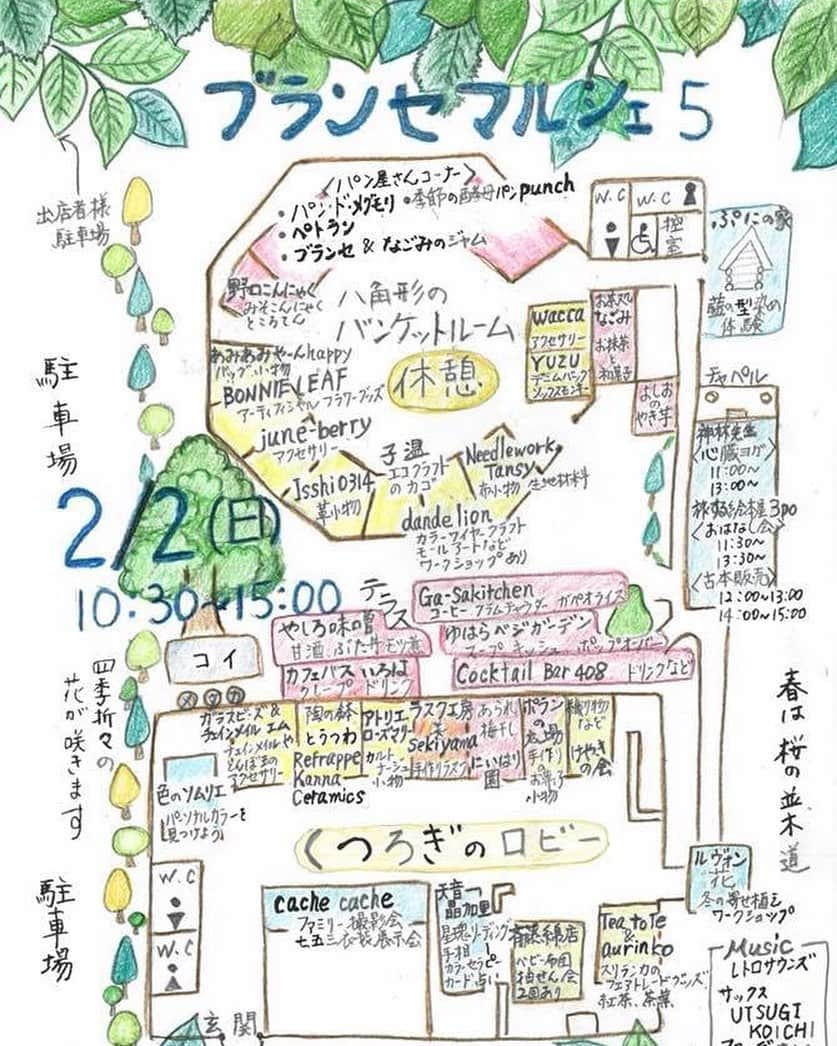 ブランセマルシェ5
出店者様
駐車場
〈パン屋さんコーナー〉
・パン・ド・メグモリ ・季節の酵母パンpunch
・ペトラン
・ブランセ & なごみのジャム
W.C
W.C
控室
ぷにの家
藍の型染め
体験
野口こんにゃく
みそこんにゃく
ところてん
八角形の
バンケットルーム
休憩
wacca
アクセサリー
YUZU
デニムバッグ
ソックスモンキー
お茶処
なごみ
お抹茶と和菓子
よしおのやき芋
あみあみやーんhappy
バッグ、小物
BONNIE LEAF
アーティフィシャル フラワーグッズ
june-berry
アクセサリー
Isshi0314
革小物
子温
エコクラフト
のカゴ
Needlework
Tansy
布小物 生地材料
dandelion
カラーワイヤークラフト
モールアートなど
ワークショップあり
チャペル
神林先生
〈心臓ヨガ〉
11:00~
13:00~
旅する絵本屋3po
〈おはなし会〉
11:30~
13:30~
〈古本販売〉
12:00~13:00
14:00~15:00
駐車場
2/2(日)
10.30~15:00
テラス
Ga-Sakitchen
コーヒー クラムチャウダー ガパオライス
ゆはらベジガーデン
スープ キッシュ ポップオーバー
Cocktail Bar 408 ドリンクなど
やしろ味の蔵
甘酒、ぶた丼 モツ煮
カフェバス いろは
クレープ ドリンク
コイ
メダカ
四季折々の
花が咲きます
ガラスビーズ&
チェインメイル エム
チェインメイルや
とんぼ玉の
アクセサリー
陶の鉢
とうつわ
Refrappe
Kanna
Ceramics
アトリエ
ローズマリー
カルトナージュ
小物
ラスク工房
Sekiyama
手作りラスク
あられ
梅干し
にいはり園
ポランの広場
手作りのお菓子
小物
織り物
など
けやきの会
色のソムリエ
パーソナルカラーを
見つけよう
くつろぎのロビー
春は桜の並木道
W.C
W.C
駐車場
cache cache
ファミリー撮影会
七五三衣装展示会
天音
晶加里
星魂リーディング
手相
カラーセラピー
カード占い
斉藤綿店
ベビー布団
抽せん会
2回あり
Tea toTe
&
aurinko
スリランカの
フェアトレードグッズ
紅茶、茶葉
ルヴォン
花
冬の寄せ植え
ワークショップ
玄関
Music
レトロサウンズ
サックス
UTSUGI
KOICHI